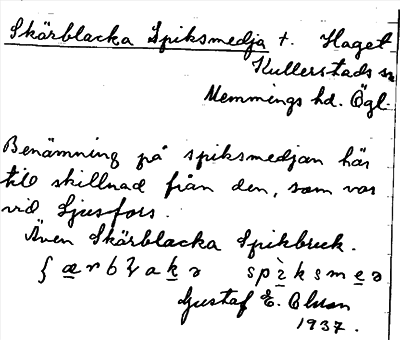 Skärblacka Spiksmedja t. Haget
Kullerstads sn
Memmings hd. Ögl.
Benämning på spiksmedjan här
till skillnad från den, som var
vid Ljusfors.
Även Skärblacka Spikbruk.
Gustaf E. Olsson
1937.